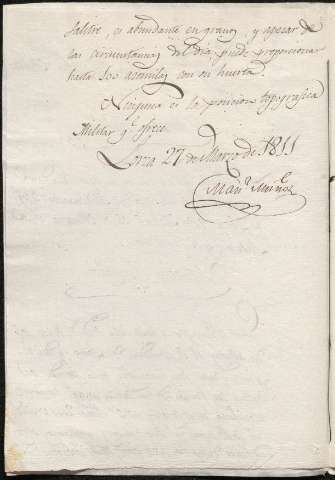 Salitre, es abundante en granos, y apesar de
las circunstancias del dia puede proporcionar
hasta 500 acemilas con su huerta.
Ninguna es la posicion topografica
Militar q.e ofrece.
Lorca 27 de Marzo de 1811
Man.l